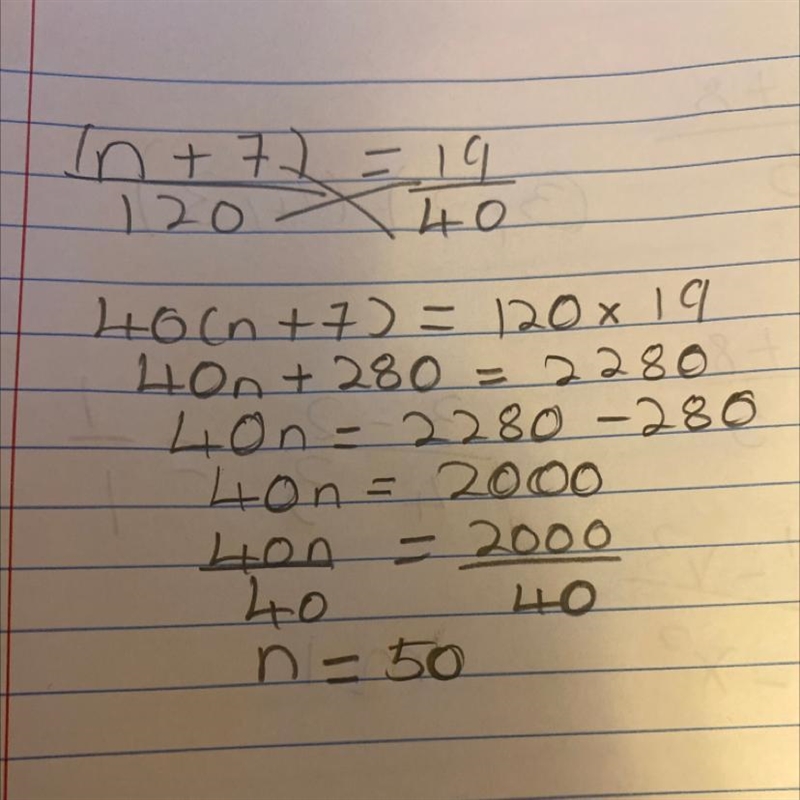 (n + 7) = 19
120 40
40(n + 7) = 120 × 19
40n + 280 = 2280
40n = 2280 - 280
40n = 2000
40n = 2000
40 40
n = 50